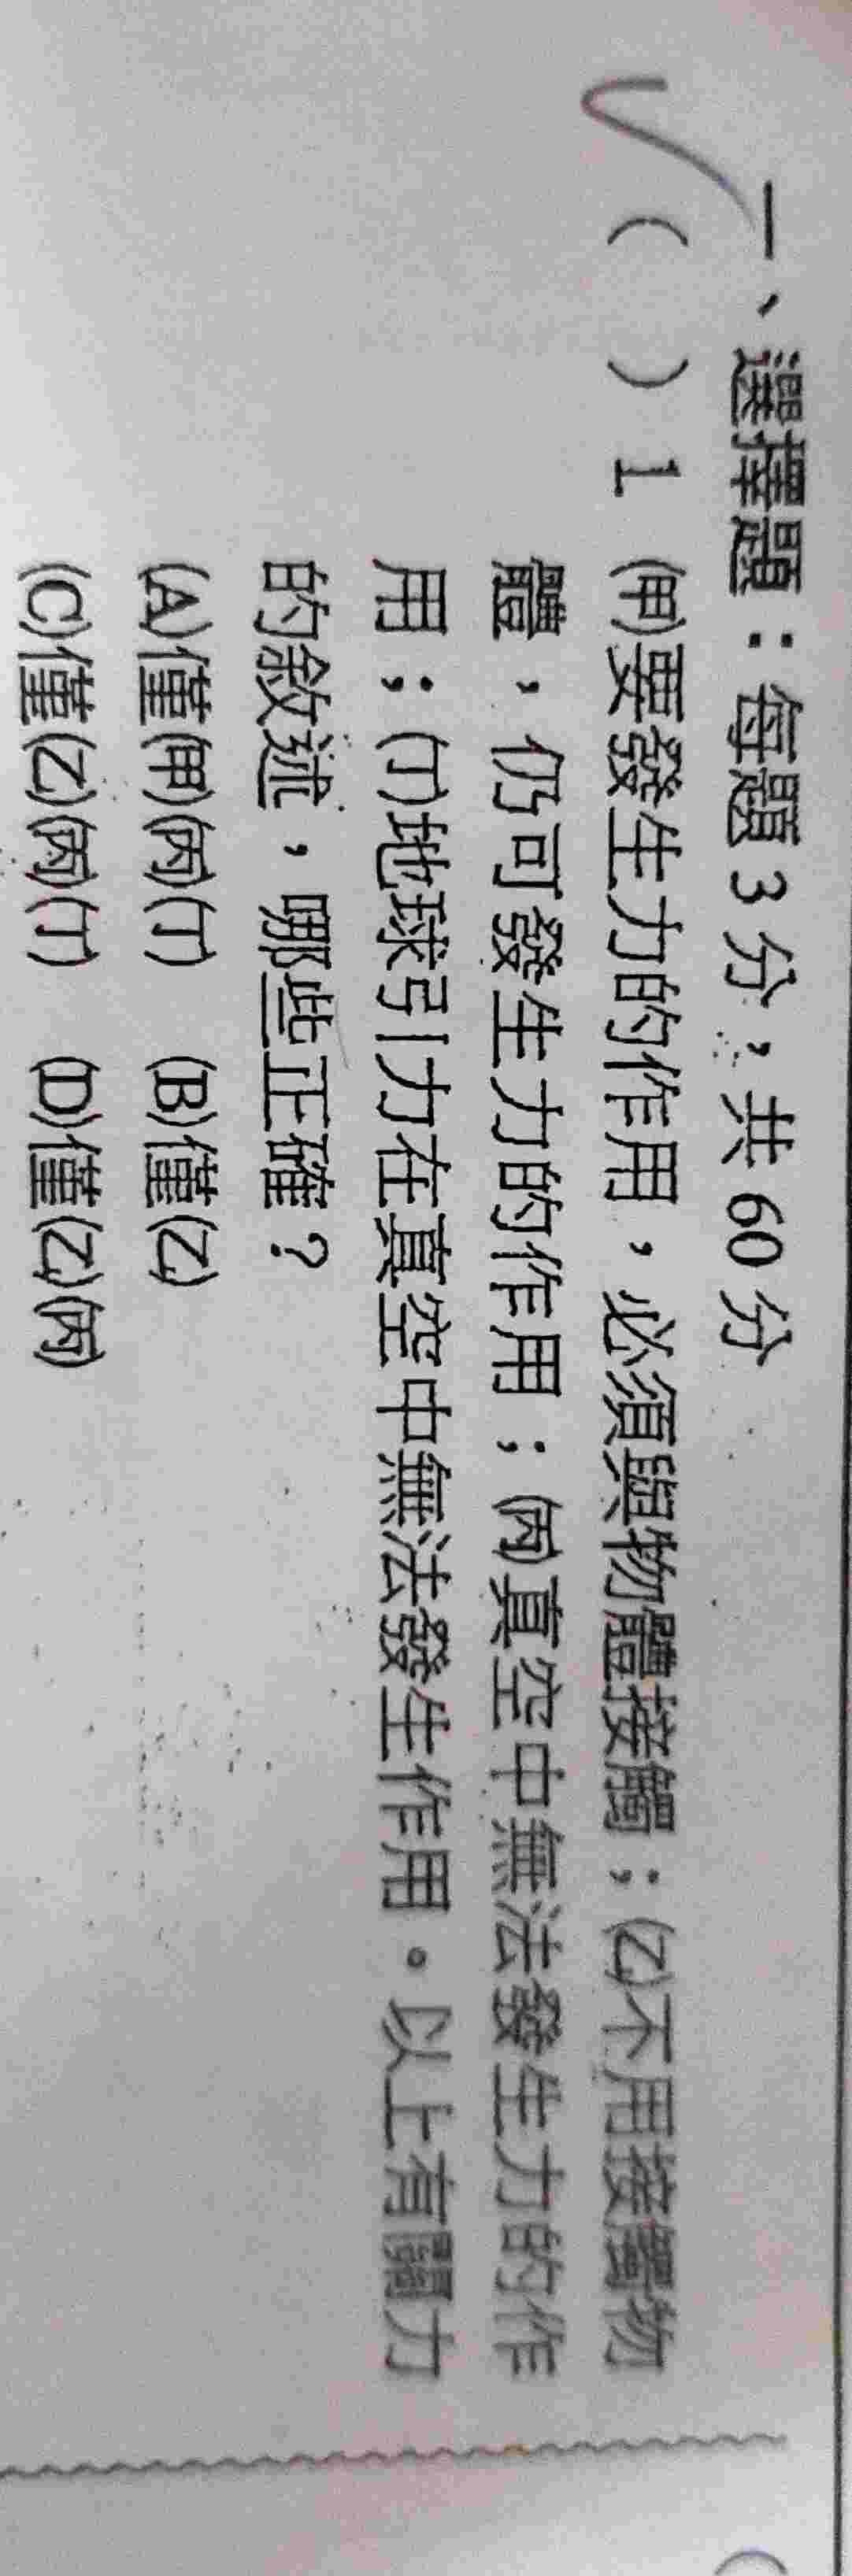 一、選擇題：每題 3 分，共 60 分
（　）1 (甲)要發生力的作用，必須與物體接觸；(乙)不用接觸物
體，仍可發生力的作用；(丙)真空中無法發生力的作
用；(丁)地球引力在真空中無法發生作用。以上有關力
的敘述，哪些正確？
(A)僅(甲)(丙)(丁)　(B)僅(乙)
(C)僅(乙)(丙)(丁)　(D)僅(乙)(丙)